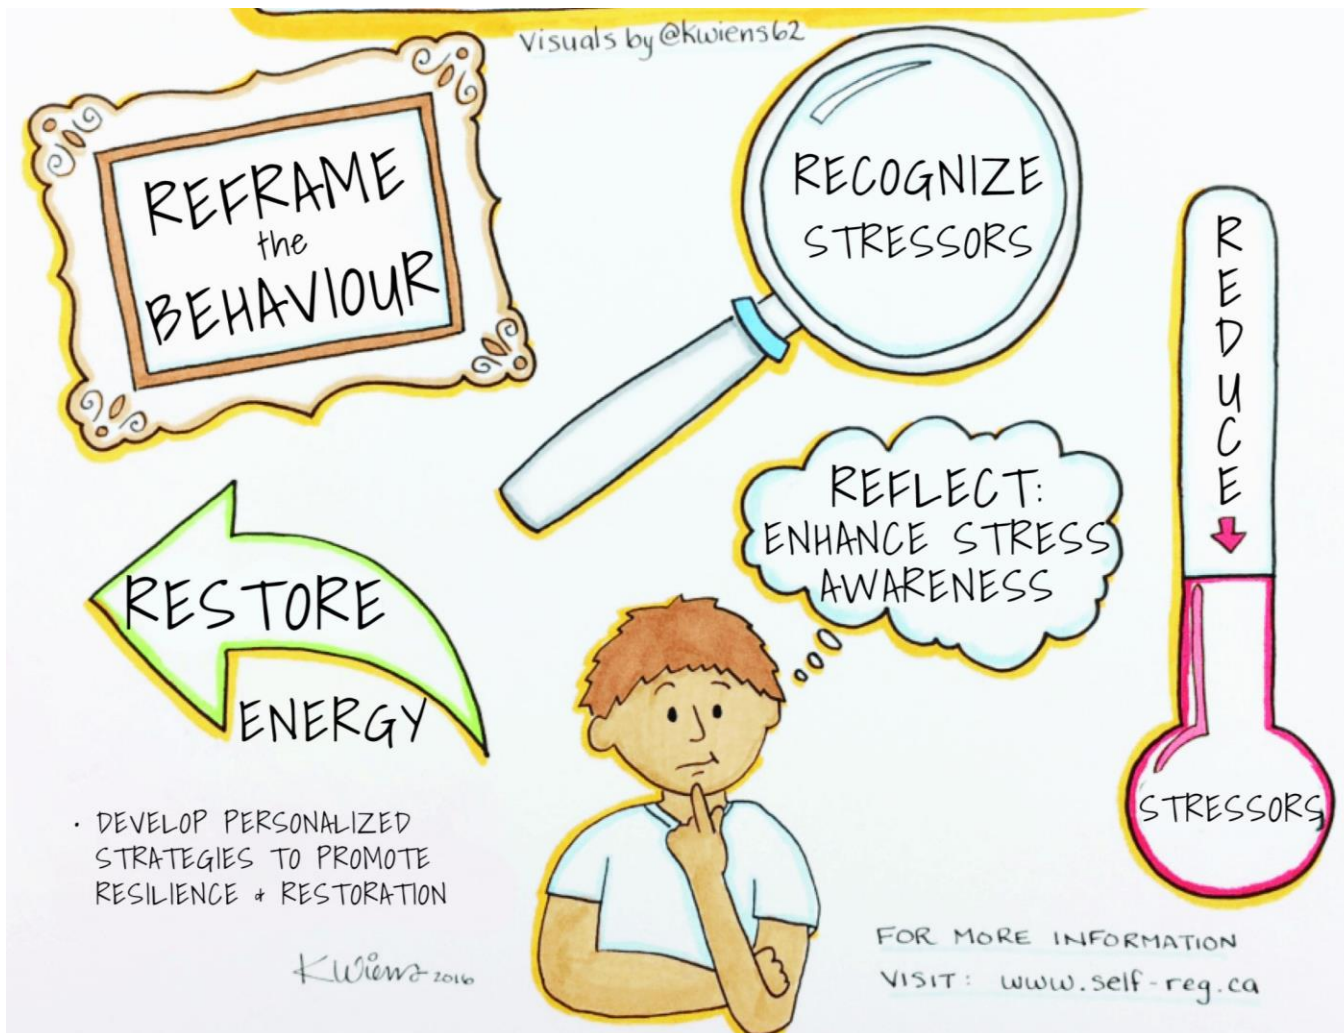 Visuals by @kwiens62
REFRAME
the
BEHAVIOUR
RECOGNIZE
STRESSORS
REDUCE
STRESSORS
REFLECT:
ENHANCE STRESS
AWARENESS
RESTORE
ENERGY
· DEVELOP PERSONALIZED
STRATEGIES TO PROMOTE
RESILIENCE & RESTORATION
KWiens 2016
FOR MORE INFORMATION
VISIT: www.self-reg.ca